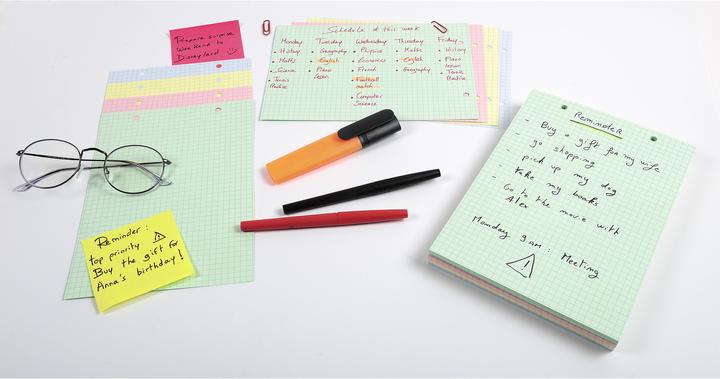 Prepare surprise
Weekend to
Disneyland
Schedule of this week
Monday
History
Maths
Science
Tennis
Practise
Tuesday
Geography
English
Piano
lesson
Wednesday
Physics
Economics
French
Football
match
Computer
Science
Thursday
Maths
English
Geography
Friday
History
Piano
lesson
Tennis
Practise
Reminder
- Buy a gift for my wife
- go shopping
pick up my dog
- take my books
- Go to the movie with
Alex
Monday 9am : Meeting
Reminder :
top priority
Buy the gift for
Anna's birthday!